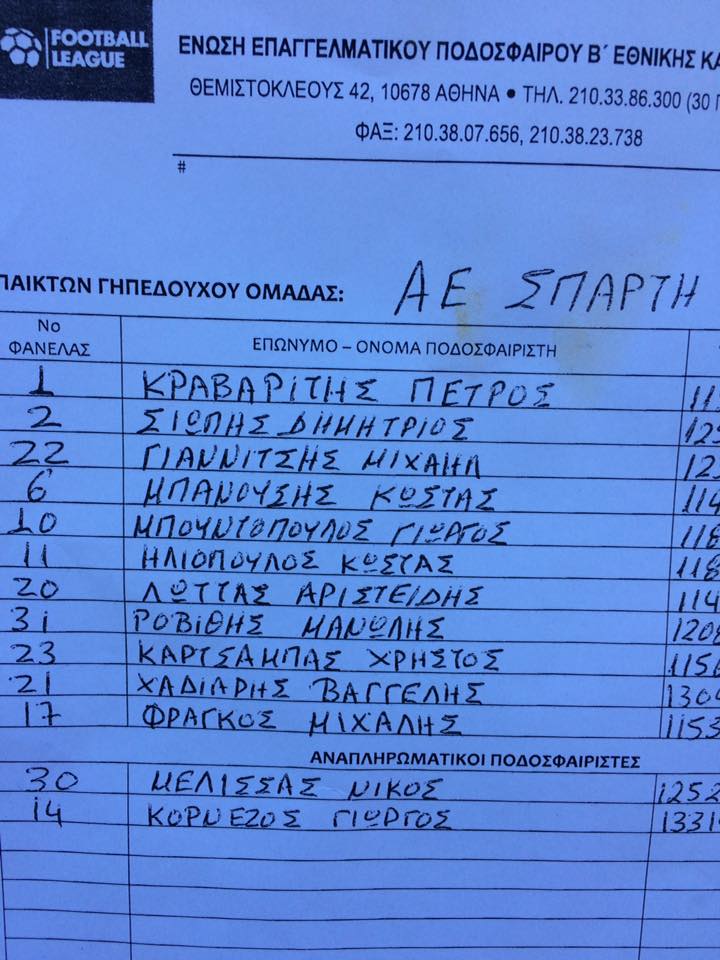 FOOTBALL
LEAGUE
ΕΝΩΣΗ ΕΠΑΓΓΕΛΜΑΤΙΚΟΥ ΠΟΔΟΣΦΑΙΡΟΥ Β΄ ΕΘΝΙΚΗΣ ΚΑ
ΘΕΜΙΣΤΟΚΛΕΟΥΣ 42, 10678 ΑΘΗΝΑ • ΤΗΛ. 210.33.86.300 (30 Γ
ΦΑΞ: 210.38.07.656, 210.38.23.738
#
ΠΑΙΚΤΩΝ ΓΗΠΕΔΟΥΧΟΥ ΟΜΑΔΑΣ: ΑΕ ΣΠΑΡΤΗ
No ΦΑΝΕΛΑΣ ΕΠΩΝΥΜΟ – ΟΝΟΜΑ ΠΟΔΟΣΦΑΙΡΙΣΤΗ
1 ΚΡΑΒΑΡΙΤΗΣ ΠΕΤΡΟΣ 11
2 ΣΙΩΠΗΣ ΔΗΜΗΤΡΙΟΣ 125
22 ΓΙΑΝΝΙΤΣΗΣ ΜΙΧΑΗΛ 123
6 ΜΠΑΝΟΥΣΗΣ ΚΩΣΤΑΣ 114
10 ΜΠΟΥΝΤΟΠΟΥΛΟΣ ΓΙΩΡΓΟΣ 118
11 ΗΛΙΟΠΟΥΛΟΣ ΚΩΣΤΑΣ 118
20 ΛΩΤΤΑΣ ΑΡΙΣΤΕΙΔΗΣ 114
31 ΡΟΒΙΘΗΣ ΜΑΝΩΛΗΣ 1200
23 ΚΑΡΤΣΑΜΠΑΣ ΧΡΗΣΤΟΣ 1150
21 ΧΑΔΙΑΡΗΣ ΒΑΓΓΕΛΗΣ 1300
17 ΦΡΑΓΚΟΣ ΜΙΧΑΛΗΣ 1153
ΑΝΑΠΛΗΡΩΜΑΤΙΚΟΙ ΠΟΔΟΣΦΑΙΡΙΣΤΕΣ
30 ΜΕΛΙΣΣΑΣ ΝΙΚΟΣ 1252
14 ΚΟΡΝΕΖΟΣ ΓΙΩΡΓΟΣ 1331